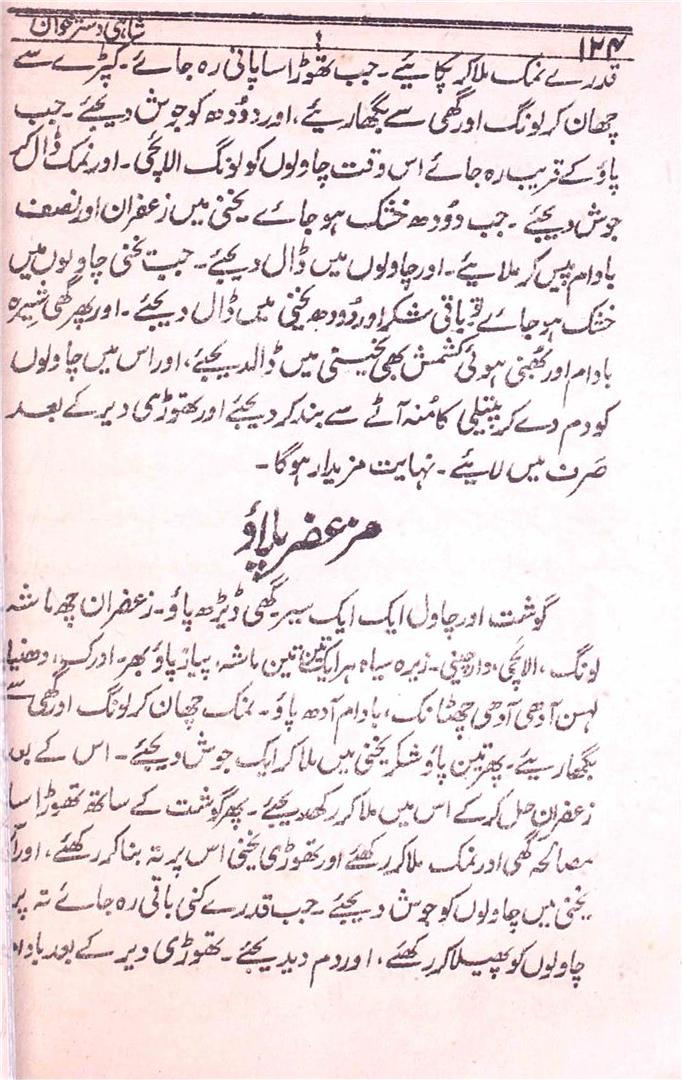 ۱۲۴
شاہی دسترخوان
قدرے نمک ملا کر پکائیے۔ جب تھوڑا سا پانی رہ جائے۔ کپڑے سے
چھان کر لونگ اور گھی سے بگھاریئے، اور دودھ کو جوش دیجئے۔ جب
پاؤ کے قریب رہ جائے اس وقت چاولوں کو لونگ الائچی۔ اور نمک ڈال کر
جوش دیجئے۔ جب دودھ خشک ہو جائے یخنی میں زعفران اور نصف
بادام پیس کر ملایئے۔ اور چاولوں میں ڈال دیجئے۔ جب یخنی چاولوں میں
خشک ہو جائے تو باقی شکر اور دودھ یخنی میں ڈال دیجئے۔ اور پھر گھی شیرہ
بادام اور بھنی ہوئی کشمش بھی یخنی میں ڈالدیجئے، اور اس میں چاولوں
کو دم دے کر پتیلی کا مُنہ آٹے سے بند کر دیجئے اور تھوڑی دیر کے بعد
صَرف میں لایئے۔ نہایت مزیدار ہوگا۔
مزعفر پلاؤ
گوشت اور چاول ایک ایک سیر۔ گھی ڈیڑھ پاؤ۔ زعفران چھ ماشہ
لونگ، الائچی، دارچینی۔ زیرہ سیاہ ہر ایک تین تین ماشہ، پیاز پاؤ بھر۔ ادرک، دھنیا
لہسن آدھی آدھی چھٹانک، بادام آدھ پاؤ۔ نمک چھان کر لونگ اور گھی سے
بگھاریئے۔ پھر تین پاؤ شکر یخنی میں ملا کر ایک جوش دیجئے۔ اس کے بعد
زعفران حل کرکے اس میں ملا کر رکھدیجئے۔ پھر گوشت کے ساتھ تھوڑا سا
مصالحہ گھی اور نمک ملا کر رکھئے اور تھوڑی یخنی اس پر تہ بنا کر رکھئے، اور
یخنی میں چاولوں کو جوش دیجئے۔ جب قدرے کنی باقی رہ جائے تہ پر
چاولوں کو پھیلا کر رکھئے، اور دم دیدیجئے۔ تھوڑی دیر کے بعد بادام